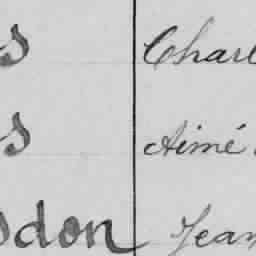 s Charl
s Aimé
sdon Jean